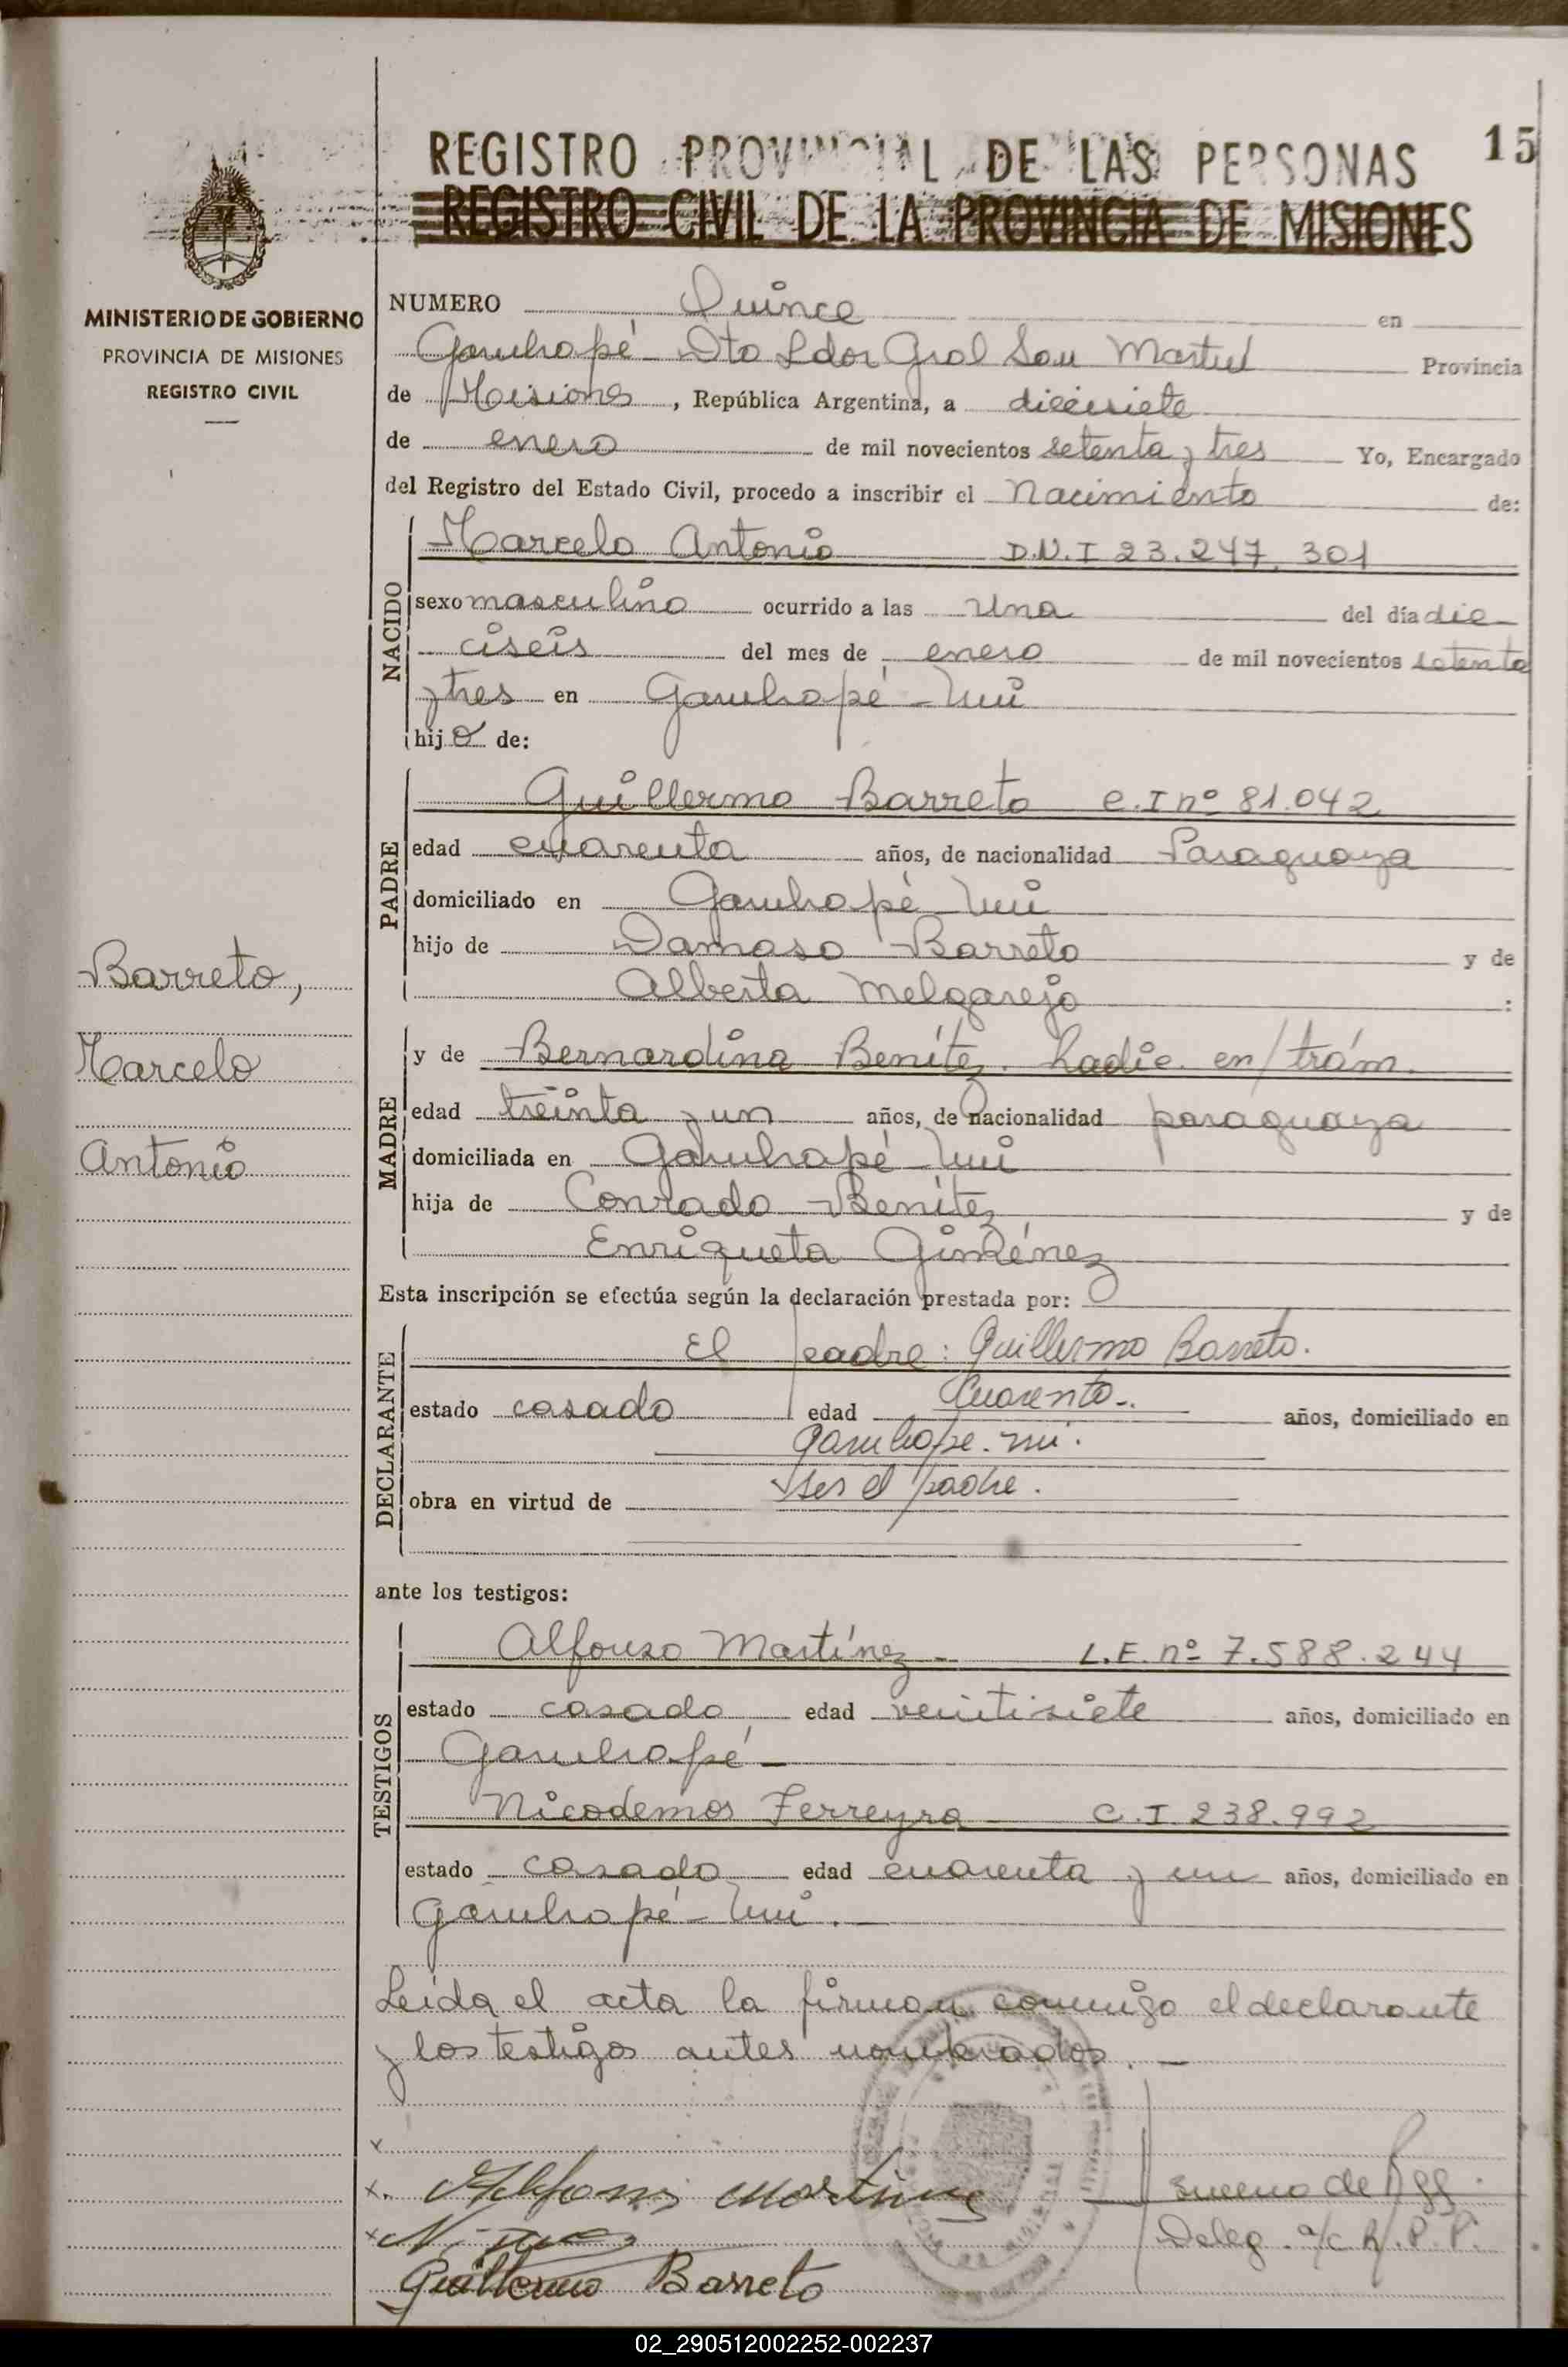 15
REGISTRO PROVINCIAL DE LAS PERSONAS
REGISTRO CIVIL DE LA PROVINCIA DE MISIONES
MINISTERIO DE GOBIERNO
PROVINCIA DE MISIONES
REGISTRO CIVIL
Barreto,
Marcelo
Antonio
NUMERO Quince en
Garuhapé - Dto Ldor Gral San Martín Provincia
de Misiones, República Argentina, a diecisiete
de enero de mil novecientos setenta y tres Yo, Encargado
del Registro del Estado Civil, procedo a inscribir el Nacimiento de:
NACIDO
Marcelo Antonio D.N.I 23.247.301
sexo masculino ocurrido a las una del día die
ciseis del mes de enero de mil novecientos setenta
y tres en Garuhapé - Mí
hijo de:
PADRE
Guillermo Barreto C.I nº 81.042
edad cuarenta años, de nacionalidad Paraguaya
domiciliado en Garuhapé - Mí
hijo de Damaso Barreto y de
Alberta Melgarejo :
MADRE
y de Bernardina Benítez. Radic. en/trám.
edad treinta y un años, de nacionalidad paraguaya
domiciliada en Garuhapé - Mí
hija de Conrado Benítez y de
Enriqueta Giménez
Esta inscripción se efectúa según la declaración prestada por:
DECLARANTE
El padre: Guillermo Barreto.
estado casado edad Cuarenta-. años, domiciliado en
Garuhape. mi.
obra en virtud de ser el padre.
ante los testigos:
TESTIGOS
Alfonso Martínez - L.E. nº 7.588.244
estado casado, edad veintisiete años, domiciliado en
Garuhapé -
Nicodemos Ferreyra C.I 238.992
estado casado edad cuarenta y un años, domiciliado en
Garuhapé - Mí. -
Leída el acta la firman conmigo el declarante
y los testigos antes nombrados. -
x
x. Alfonso Martinez
x
Guillermo Barreto
de
Deleg. a/c R.P.P.
02_290512002252-002237